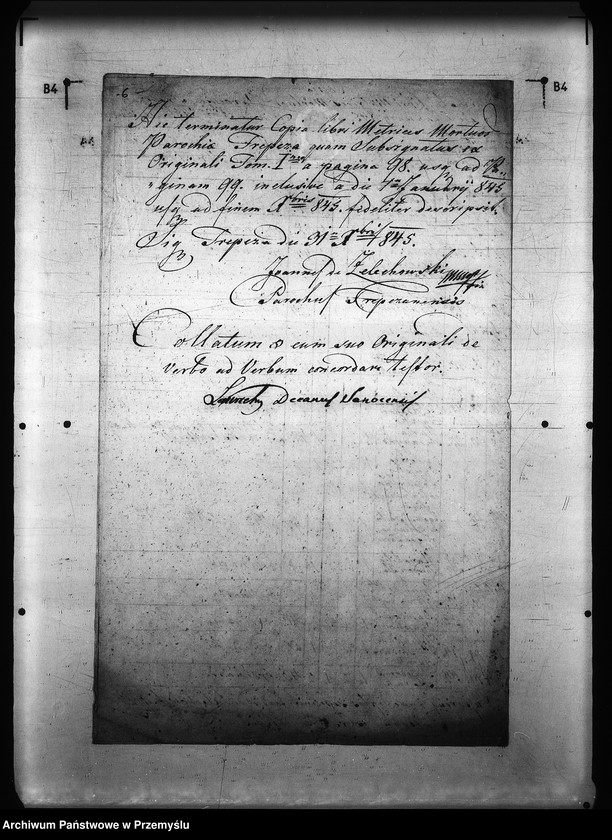 B4
B4
-6-
Hic terminatur Copia libri Metrices Mortuor
Parochia Trepcza quam Subsignatus ex
Originali Tom. I a pagina 98. usq ad Pa„
„ginam 99. inclusive a die 1 Januarij 845
usq ad finem Xbris 845. fideliter descripsit.
Sig Trepcza die 31 Xbris 1845.
Joannes de Żelechowski
Parochus Trepczanensis
Collatum & cum suo Originali de
Verbo ad Verbum concordare testor.
Decanus Sanocensis
Archiwum Państwowe w Przemyślu